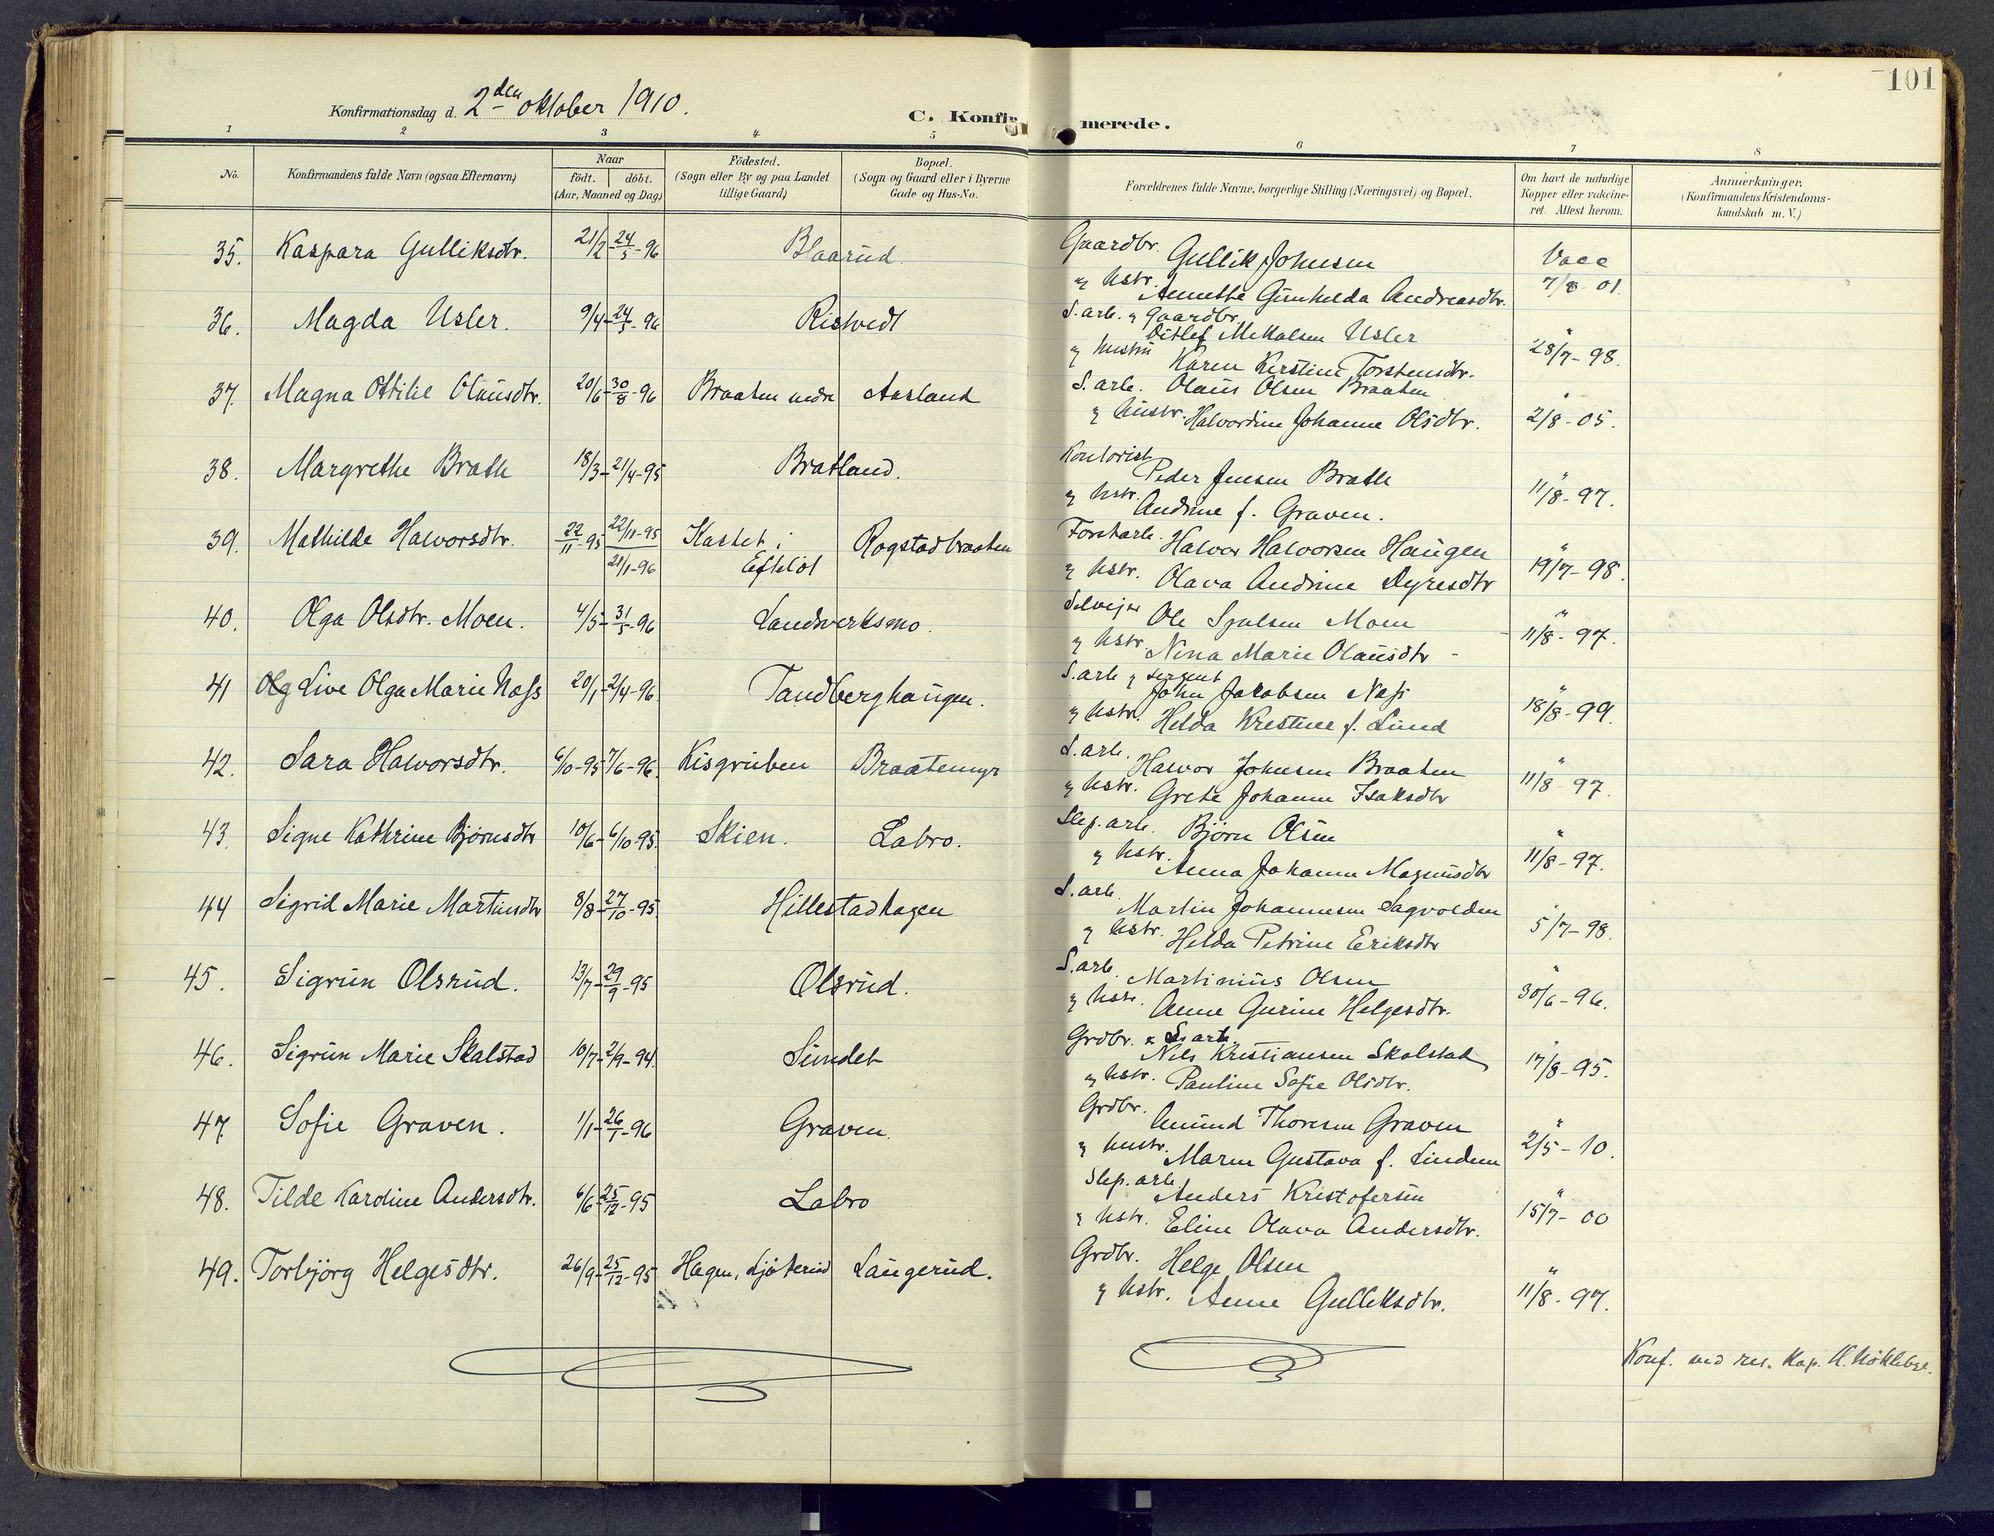 101
Konfirmationsdag d. 2den oktober 1910.
C. Konfirmerede.
1 2 3 4 5 6 7 8
No.
Konfirmandens fulde Navn (ogsaa Efternavn)
Naar
födt. döbt.
(Aar, Maaned og Dag)
Födested.
(Sogn eller By og paa Landet tillige Gaard)
Bopæl.
(Sogn og Gaard eller i Byerne Gade og Hus-No.
Forældrenes fulde Navne, borgerlige Stilling (Næringsvei) og Bopæl.
Om havt de naturlige Kopper eller vakcineret. Attest herom.
Anmærkninger.
(Konfirmandens Kristendomskundskab m. V.)
35. Kaspara Gulliksdtr. 21/2 - 24/5 - 96 Blaarud. Gaardbr. Gullik Johnsen
" hstr. Annette Gunhilda Andreasdtr. Vacc 7/8 01.
36. Magda Usler. 9/4 - 24/5 - 96 Ristvedt S.arb. " Gaardbr. Ditlef Mikalsen Usler
" hustru Karen Kirstine Torstensdtr. " 28/7 - 98.
37. Magna Ottilie Olausdtr. 20/6 - 30/8 - 96 Braaten nedre Aasland S.arb. Olaus Olsen Braaten
" hustr. Halvordine Johanne Olsdtr. " 2/8 - 05.
38. Margrethe Brath 18/3 - 21/4 - 95 Bratland. Kontorist Peder Jensen Brath
" hstr. Andrine f. Graven. " 11/8 - 97.
39. Mathilde Halvorsdtr. 22/11 - 95 22/11 - 95 21/1 - 96 Kastet i Efteløt Rogstadbraaten Forstarb. Halvor Halvorsen Haugen
" hstr. Olava Andrine Dyresdtr " 19/7 - 98.
40. Olga Olsdtr. Moen. 4/5 - 31/5 - 96 Landsverksmo. Selvejer Ole Moen
" hstr. Nina Marie Olausdtr - " 11/8 - 97.
41 Olg Live Olga Marie Næss 20/1 - 2/4 - 96. Tandberghaugen. S.arb " sergent John Jakobsen Næss
" hstr. Helda Krestine f. Lund " 18/8 - 99.
42. Sara Halvorsdtr. 6/10 - 95 7/6 - 96. Kisgruben Braatemyr S.arb. Halvor Johnsen Braaten
" hstr. Grete Johanne Isaksdtr " 11/8 - 97.
43. Signe Kathrine Bjørnsdtr 10/6 - 6/10 - 95. Skien. Labro. Slip.arb. Bjørn Olsen
" hstr. Anna Johanne Magnusdtr " 11/8 - 97.
44 Sigrid Marie Martinsdtr 8/8 - 27/10 - 95 Hillestadhagen S.arb. Martin Johannesen Sagvolden
" hstr. Helda Petrine Eriksdtr " 5/7 - 98.
45. Sigrun Olsrud. 13/7 - 29/9 - 95 Olsrud. S.arb. Martinius Olsen
" hstr. Anne Gurine Helgesdtr. " 30/6 - 96.
46. Sigrun Marie Skalstad 10/7 - 2/9 - 94. Sundet Grdbr. & S.arb. Nils Kristiansen Skalstad
" hstr. Pauline Sofie Olsdtr. " 17/8 - 95.
47. Sofie Graven. 1/1 - 26/1 - 96 Graven. Grdbr. Amund Thoresen Graven
" hustr. Maren Gustava f. Lindem " 2/5 - 10.
48. Tilde Karoline Andersdtr. 6/6 - 25/12 - 95 Labro Slip.arb. Anders Kristofersen
" hstr. Eline Olava Andersdtr. " 15/7 - 00
49. Torbjörg Helgesdtr. 26/9 - 25/12 - 95 Hagen, Ljøterud Laugerud. Grdbr. Helge Olsen
" hstr. Anne Gulliksdtr. " 11/8 - 97.
Konf. ved res. kap. H. Nøklebye.